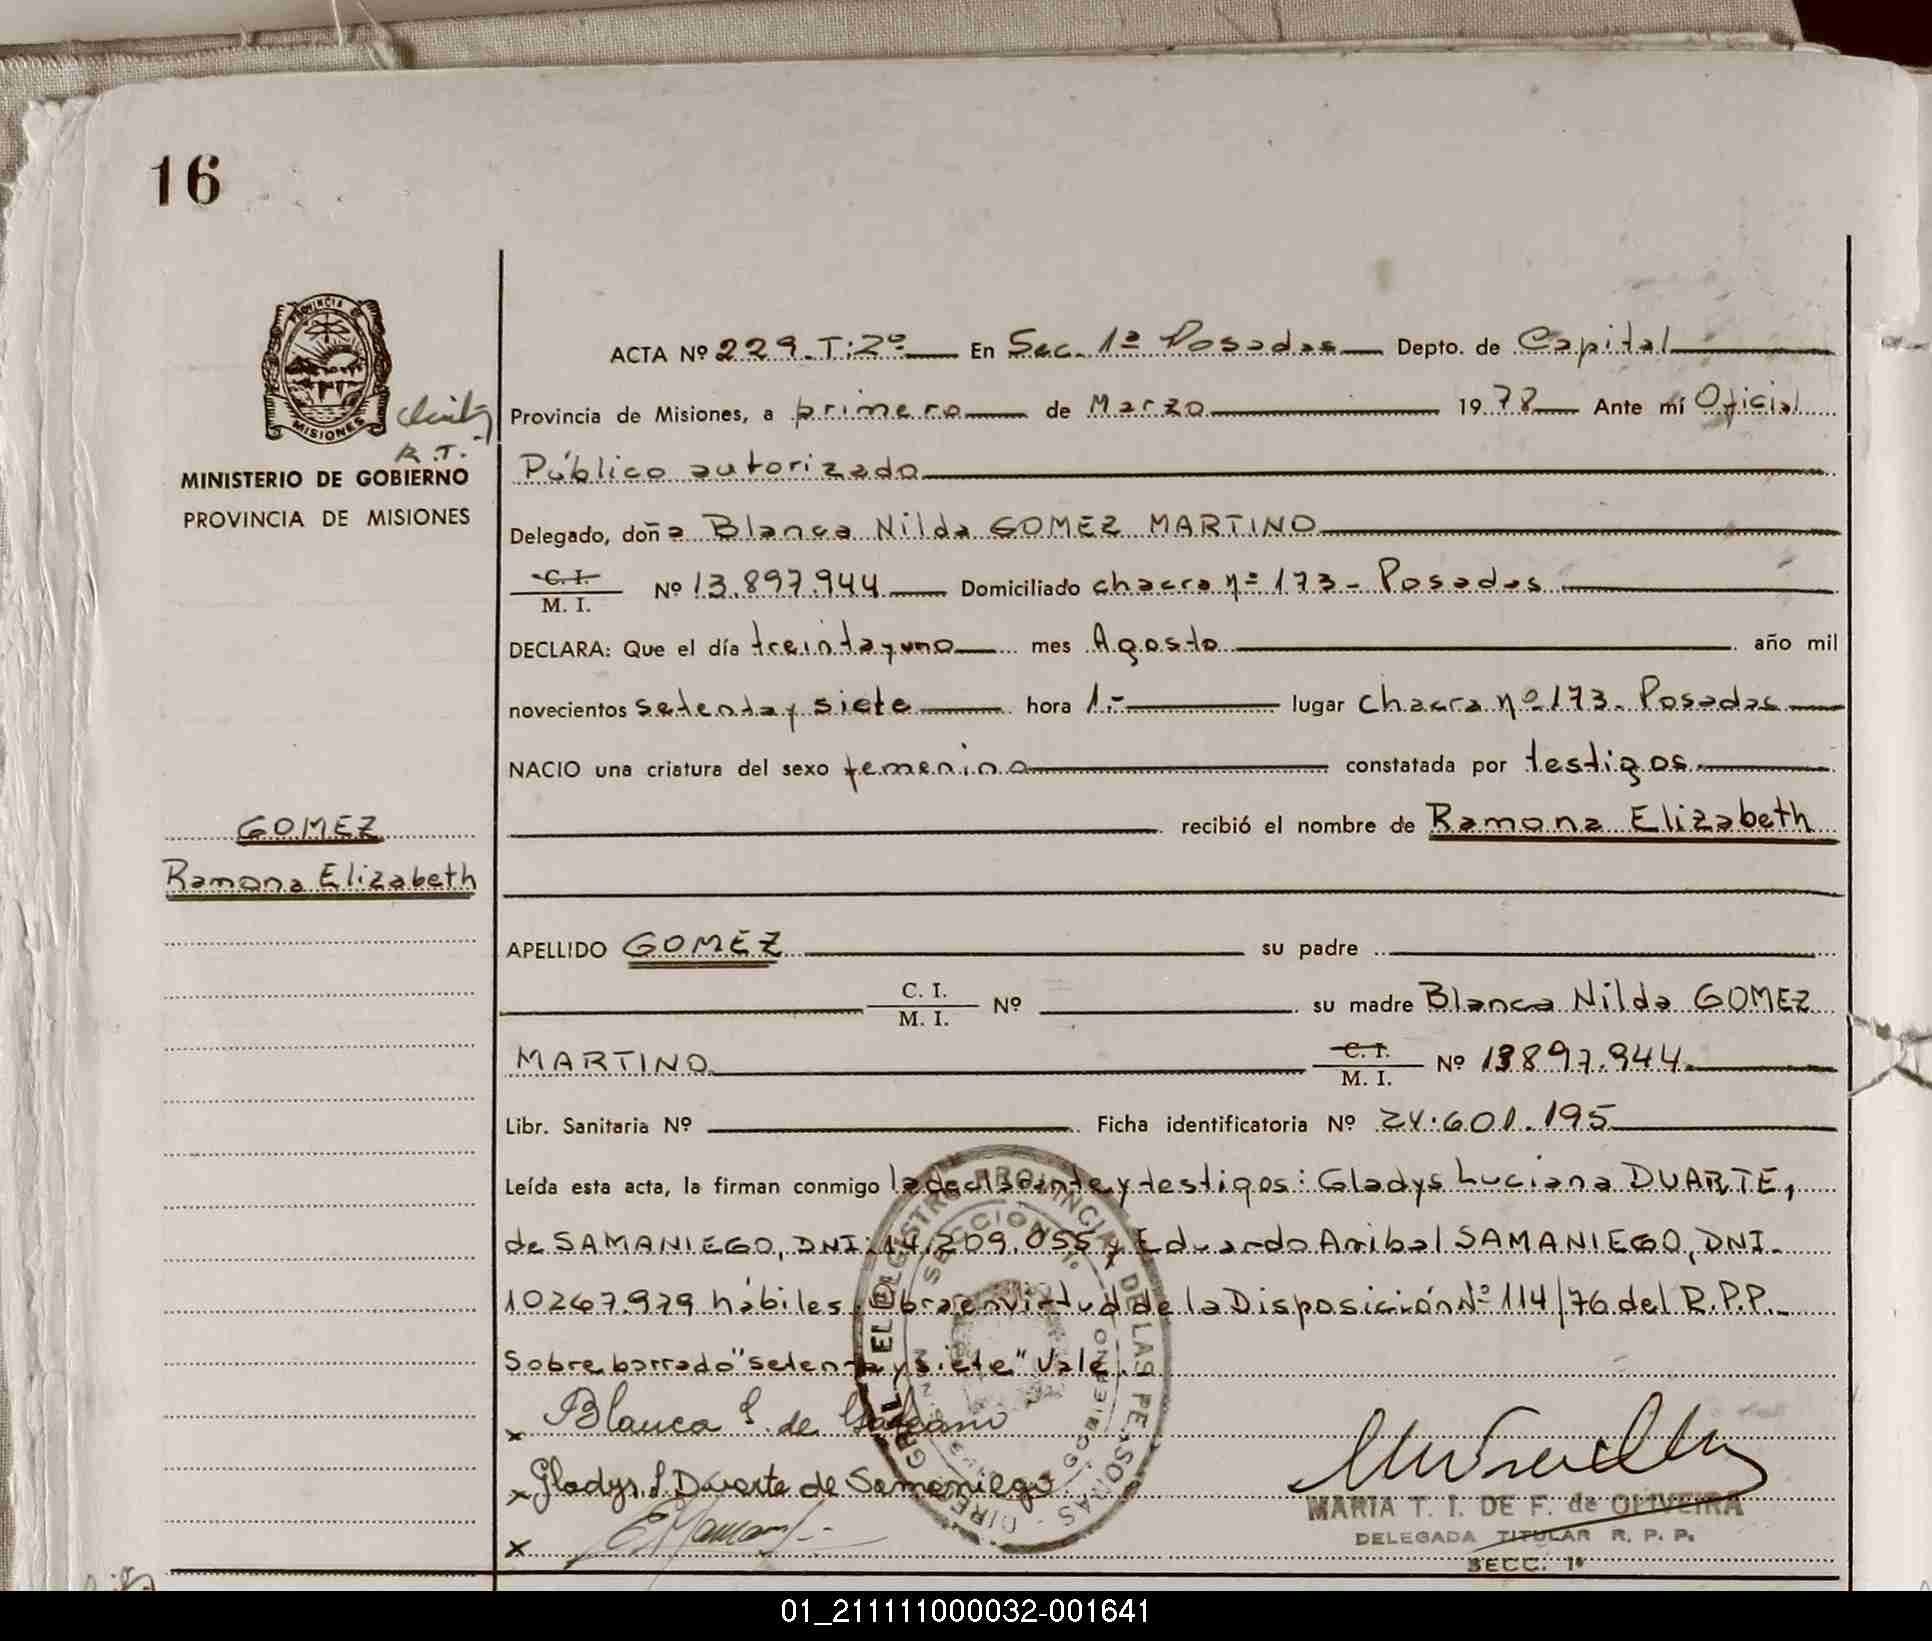 16
PROVINCIA DE
MISIONES
R.T.
MINISTERIO DE GOBIERNO
PROVINCIA DE MISIONES
GOMEZ
Ramona Elizabeth
ACTA Nº 229.T:2º En Sec. 1ª Posadas Depto. de Capital
Provincia de Misiones, a primero de Marzo 1978 Ante mí Oficial
Público autorizado
Delegado, doña Blanca Nilda GOMEZ MARTINO
C. I.
M. I. Nº 13.897.944 Domiciliado chacra nº 173 - Posadas
DECLARA: Que el día treinta y uno mes Agosto año mil
novecientos setenta y siete hora 1.- lugar chacra nº 173. Posadas
NACIO una criatura del sexo femenino constatada por testigos.
recibió el nombre de Ramona Elizabeth
APELLIDO GOMEZ su padre
C. I.
M. I. Nº su madre Blanca Nilda GOMEZ
MARTINO C. I.
M. I. Nº 13897.944
Libr. Sanitaria Nº Ficha identificatoria Nº 24.601.195
Leída esta acta, la firman conmigo la declarante y testigos: Gladys Luciana DUARTE,
de SAMANIEGO, DNI: 14.209.055 y Eduardo Anibal SAMANIEGO, DNI.
10267.929 hábiles. Obra en virtud de la Disposición Nº 114/76 del R.P.P.
Sobre borrado "setenta y siete" Vale.
x Blanca G. de Galeano
x Gladys L Duarte de Samaniego
x
MARIA T. I. DE F. de OLIVEIRA
DELEGADA TITULAR R. P. P.
SECC. 1ª
01_211111000032-001641